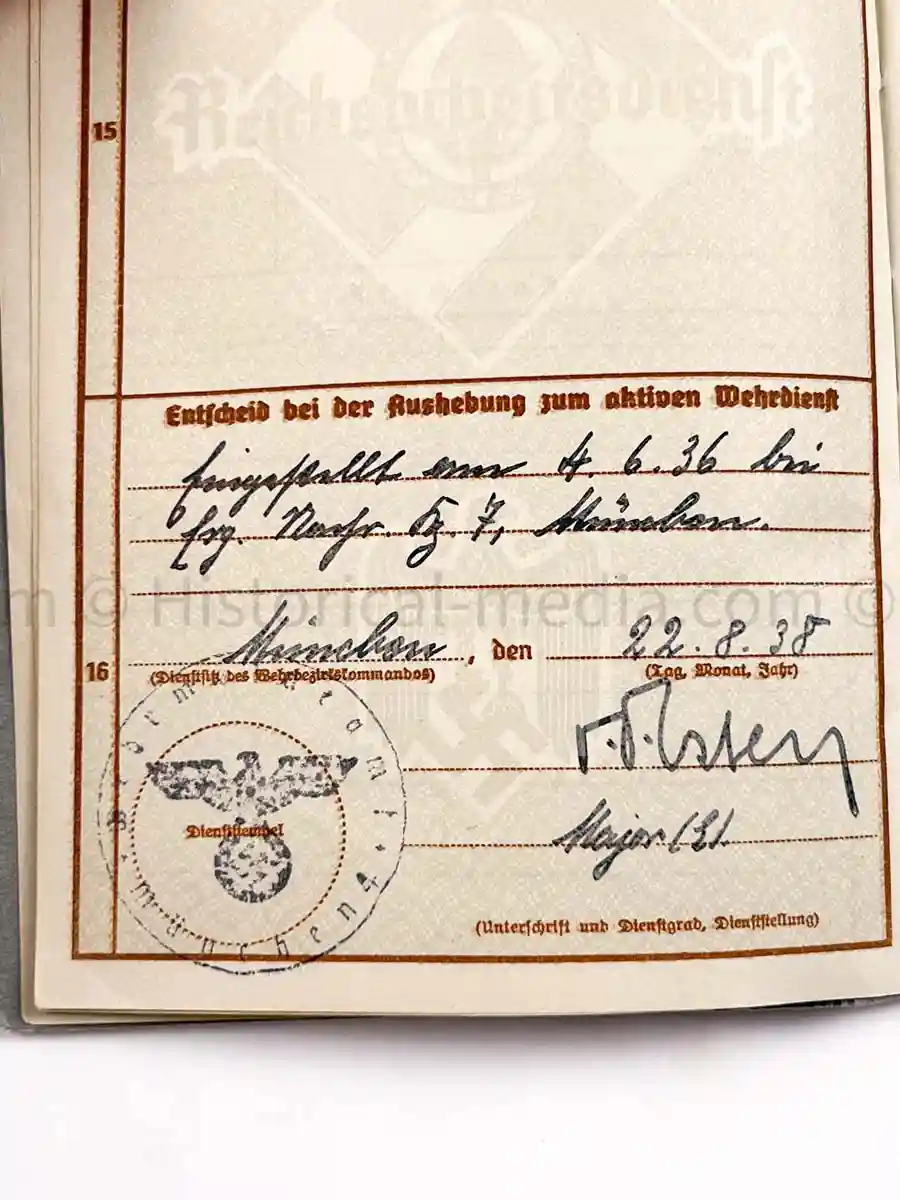 Reichsarbeitsdienst
15
Entscheid bei der Aushebung zum aktiven Wehrdienst
Eingestellt am 4. 6. 36 bei
Erg. Nachr. Kp. 7, München.
© Historical-media.com ©
München, den 22. 8. 38
16
(Dienstsitz des Wehrbezirkskommandos) (Tag, Monat, Jahr)
Wehrmeldeamt 1
Dienststempel
München 4
Major (E).
(Unterschrift und Dienstgrad, Dienststellung)